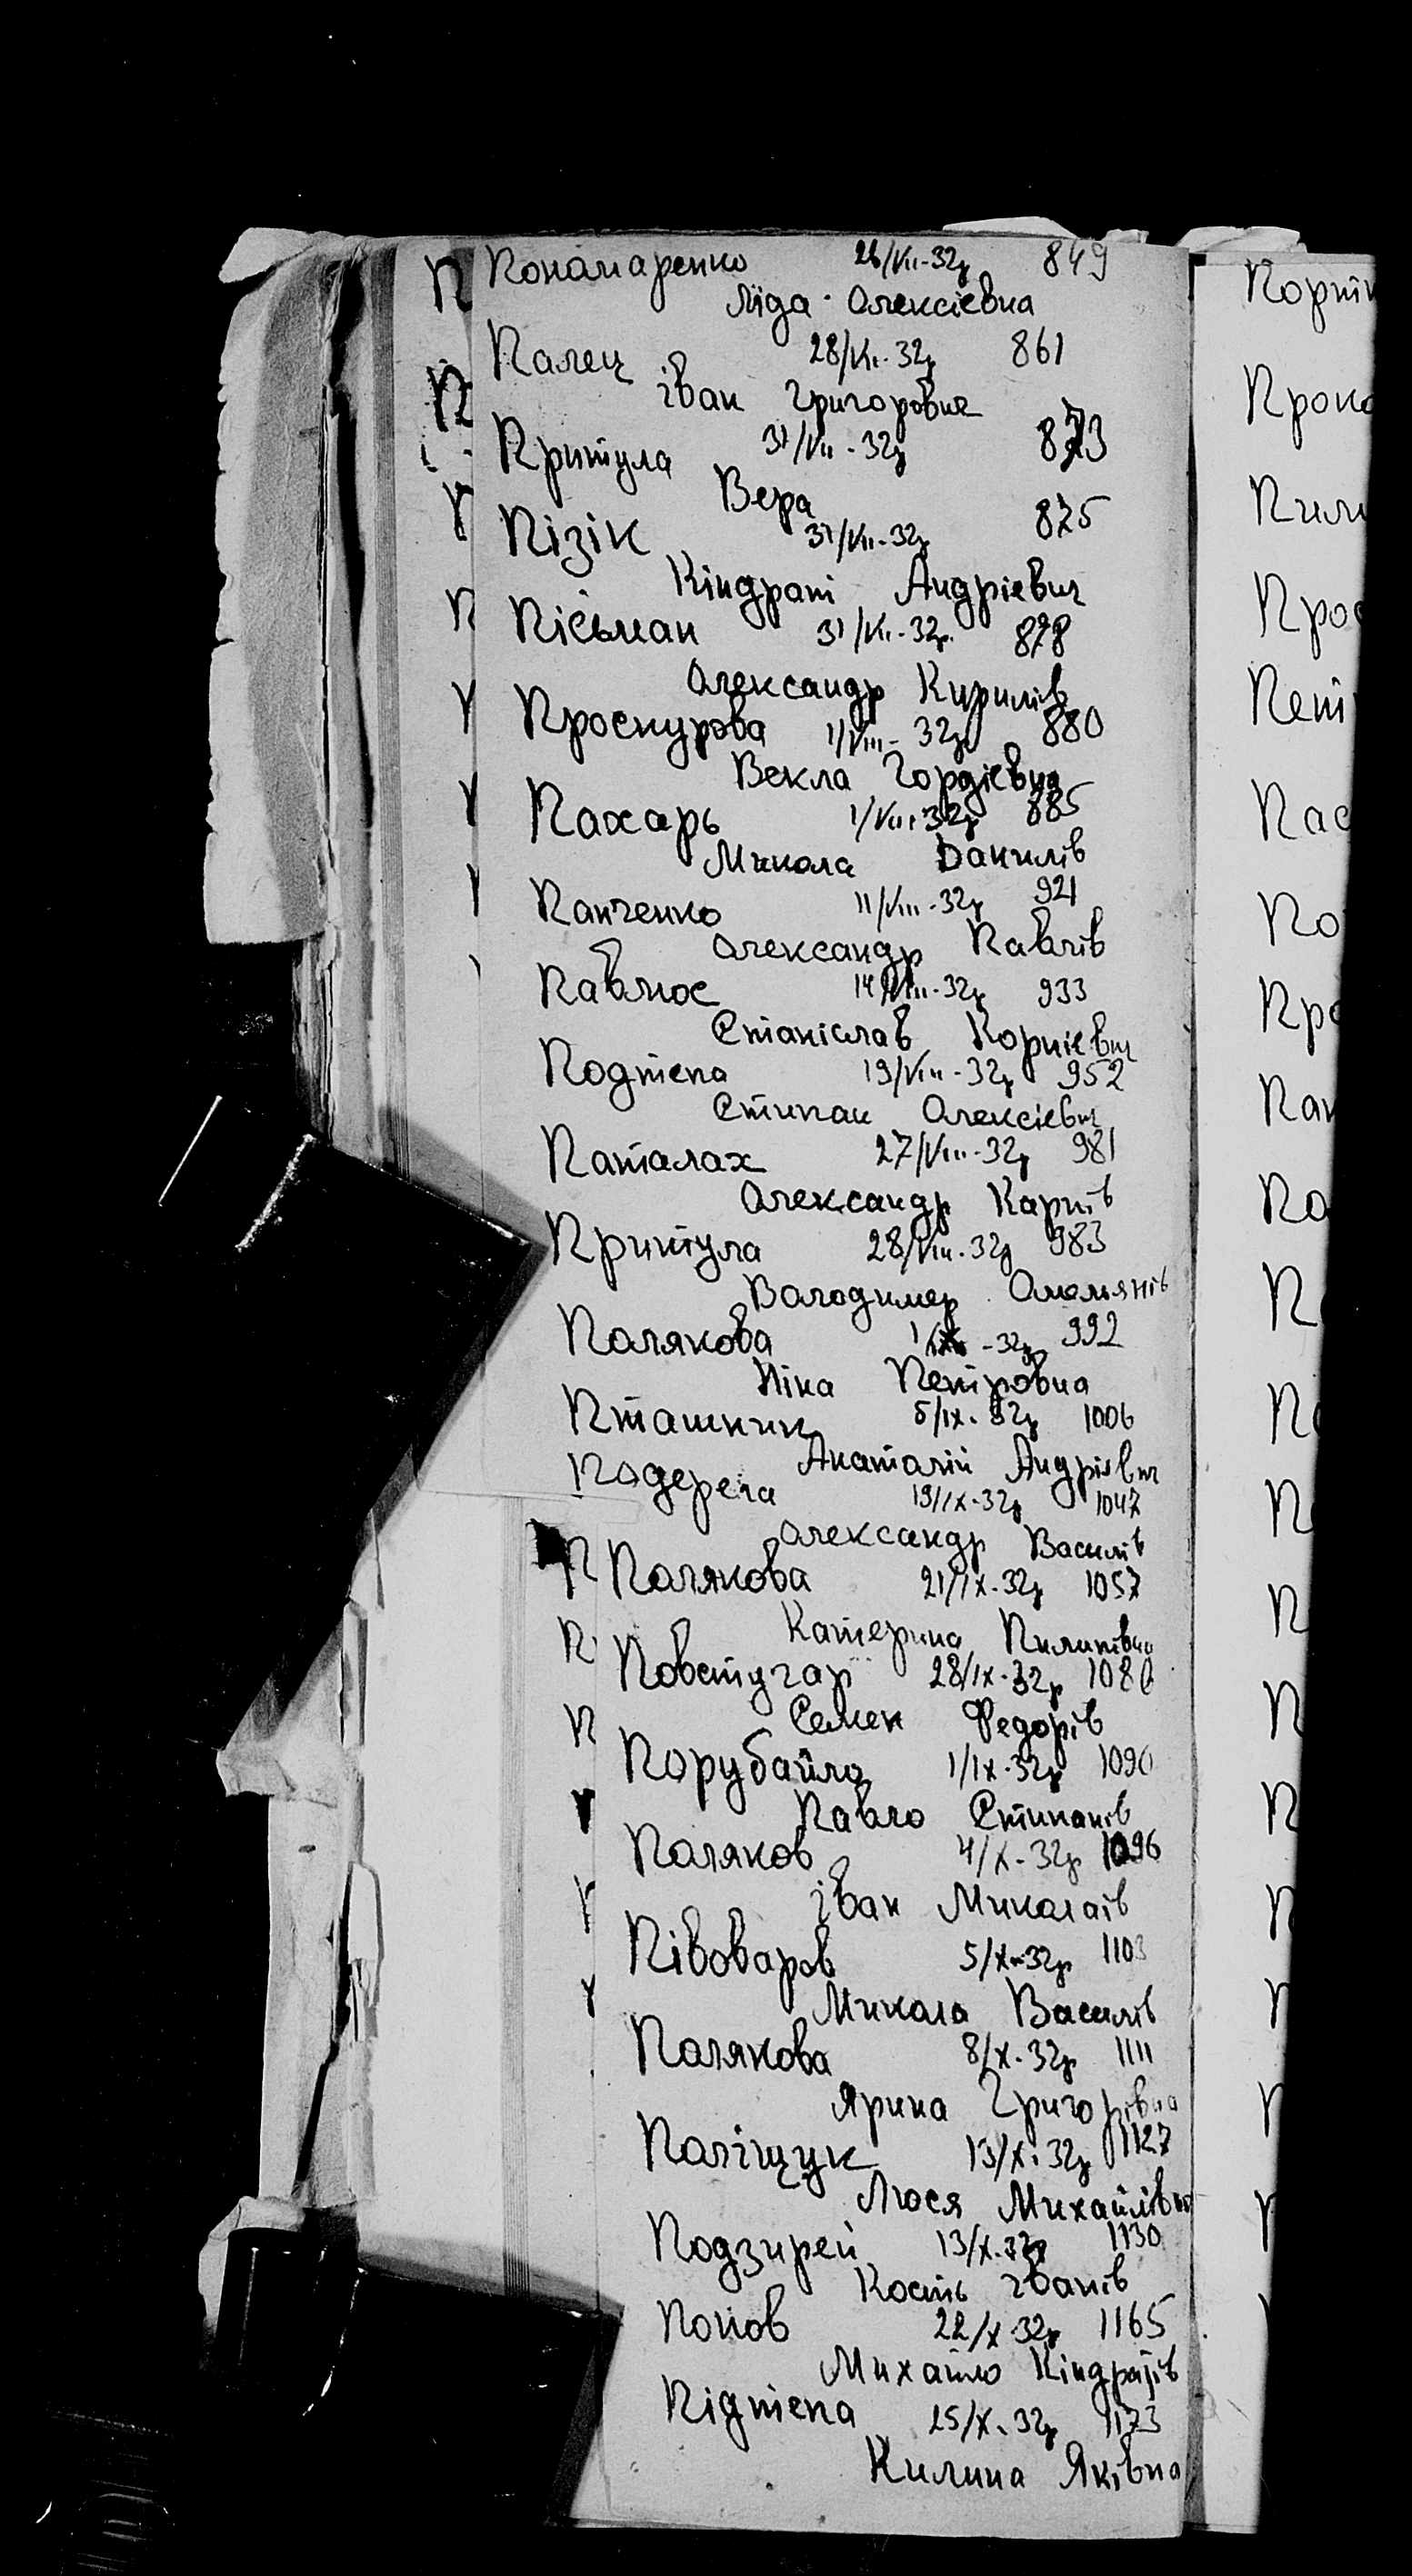 Пономаренко 26/VII-32р 849
Ліда Олексієвна
Палец 28/VII-32р 861
Іван Григорович
Притула 31/VII-32р 873
Вера
Пізік 31/VII-32р 875
Кіндрат Андрієвич
Пісьман 31/VII-32р. 878
Олександр Кирилів
Проскурова 1/VIII-32р 880
Векла Гордієвна
Пахарь 1/VIII-32р 885
Микола Данилів
Панченко 11/VIII-32р 921
Олександр Павлів
Павлюс 14/VIII-32р 933
Станіслав Корнієвич
Подтепа 19/VIII-32р 952
Стипан Олексієвич
Паталах 27/VIII-32р 981
Олександр Карпів
Притула 28/VIII-32р 983
Володимер Омелянів
Полякова 1/IX-32р 992
Ніна Петровна
Пташник 5/IX-32р 1006
Анатолій Андрієвич
Подерега 19/IX-32р 1047
Олександр Василів
Полякова 21/IX-32р 1057
Катерина Пилипівна
Повстугар 28/IX-32р 1080
Семен Федорів
Порубайло 1/IX-32р 1090
Павло Стипанів
Поляков 4/X-32р 1096
Іван Миколаів
Півоваров 5/X-32р 1103
Микола Василів
Полякова 8/X-32р 1111
Ярина Григорівна
Поліщук 13/X-32р 1127
Люся Михайлівна
Подзирей 13/X-32р 1130
Кость Іванів
Попов 22/X-32р 1165
Михайло Кіндратів
Підтепа 25/X-32р 1173
Килина Яківна